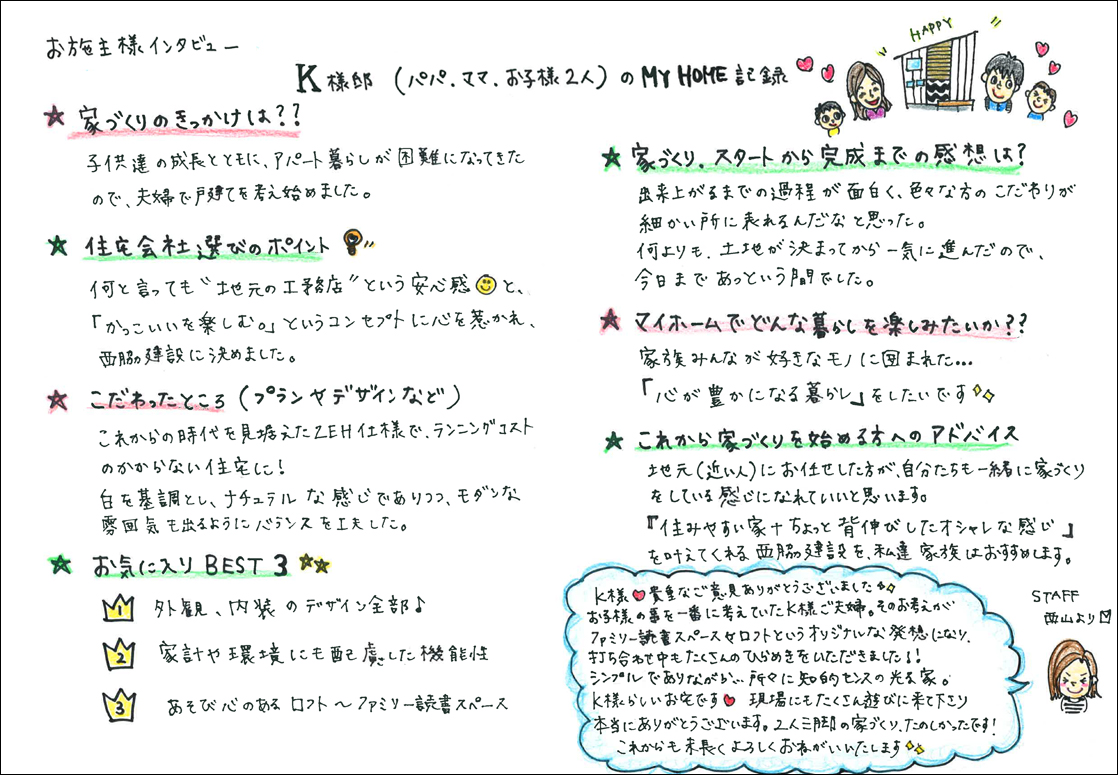 お施主様インタビュー
K様邸 (パパ.ママ.お子様2人)のMY HOME記録
HAPPY
☆ 家づくりのきっかけは??
子供達の成長とともに、アパート暮らしが困難になってきた
ので、夫婦で戸建てを考え始めました。
☆ 住宅会社選びのポイント
何と言っても"地元の工務店"という安心感と、
「かっこいいを楽しむ。」というコンセプトに心を惹かれ、
西脇建設に決めました。
☆ こだわったところ (プランやデザインなど)
これからの時代を見据えたZEH仕様で、ランニングコスト
のかからない住宅に!
白を基調とし、ナチュラルな感じでありつつ、モダンな
雰囲気も出るようにバランスを工夫した。
☆ お気に入りBEST 3 ☆☆
1 外観、内装のデザイン全部♪
2 家計や環境にも配慮した機能性
3 あそび心のあるロフト〜ファミリー読書スペース
☆ 家づくり.スタートから完成までの感想は?
出来上がるまでの過程が面白く、色々な方のこだわりが
細かい所に表れるんだなと思った。
何よりも、土地が決まってから一気に進んだので、
今日まであっという間でした。
☆ マイホームでどんな暮らしを楽しみたいか??
家族みんなが好きなモノに囲まれた...
「心が豊かになる暮らし」をしたいです
☆ これから家づくりを始める方へのアドバイス
地元(近い人)にお任せした方が、自分たちも一緒に家づくり
をしている感じになれていいと思います。
『住みやすい家+ちょっと背伸びしたオシャレな感じ』
を叶えてくれる西脇建設を、私達家族はおすすめします。
K様♥貴重なご意見ありがとうございました
お子様の事を一番に考えていたK様ご夫婦。そのお考えが
ファミリー読書スペース&ロフトというオリジナルな発想になり、
打ち合わせ中もたくさんのひらめきをいただきました!!
シンプルでありながか...所々に知的センスの光る家。
K様らしいお宅です♥ 現場にもたくさん遊びに来て下さり
本当にありがとうございます。2人三脚の家づくり、たのしかったです!
これからも末長くよろしくおねがいいたします
STAFF
西山より